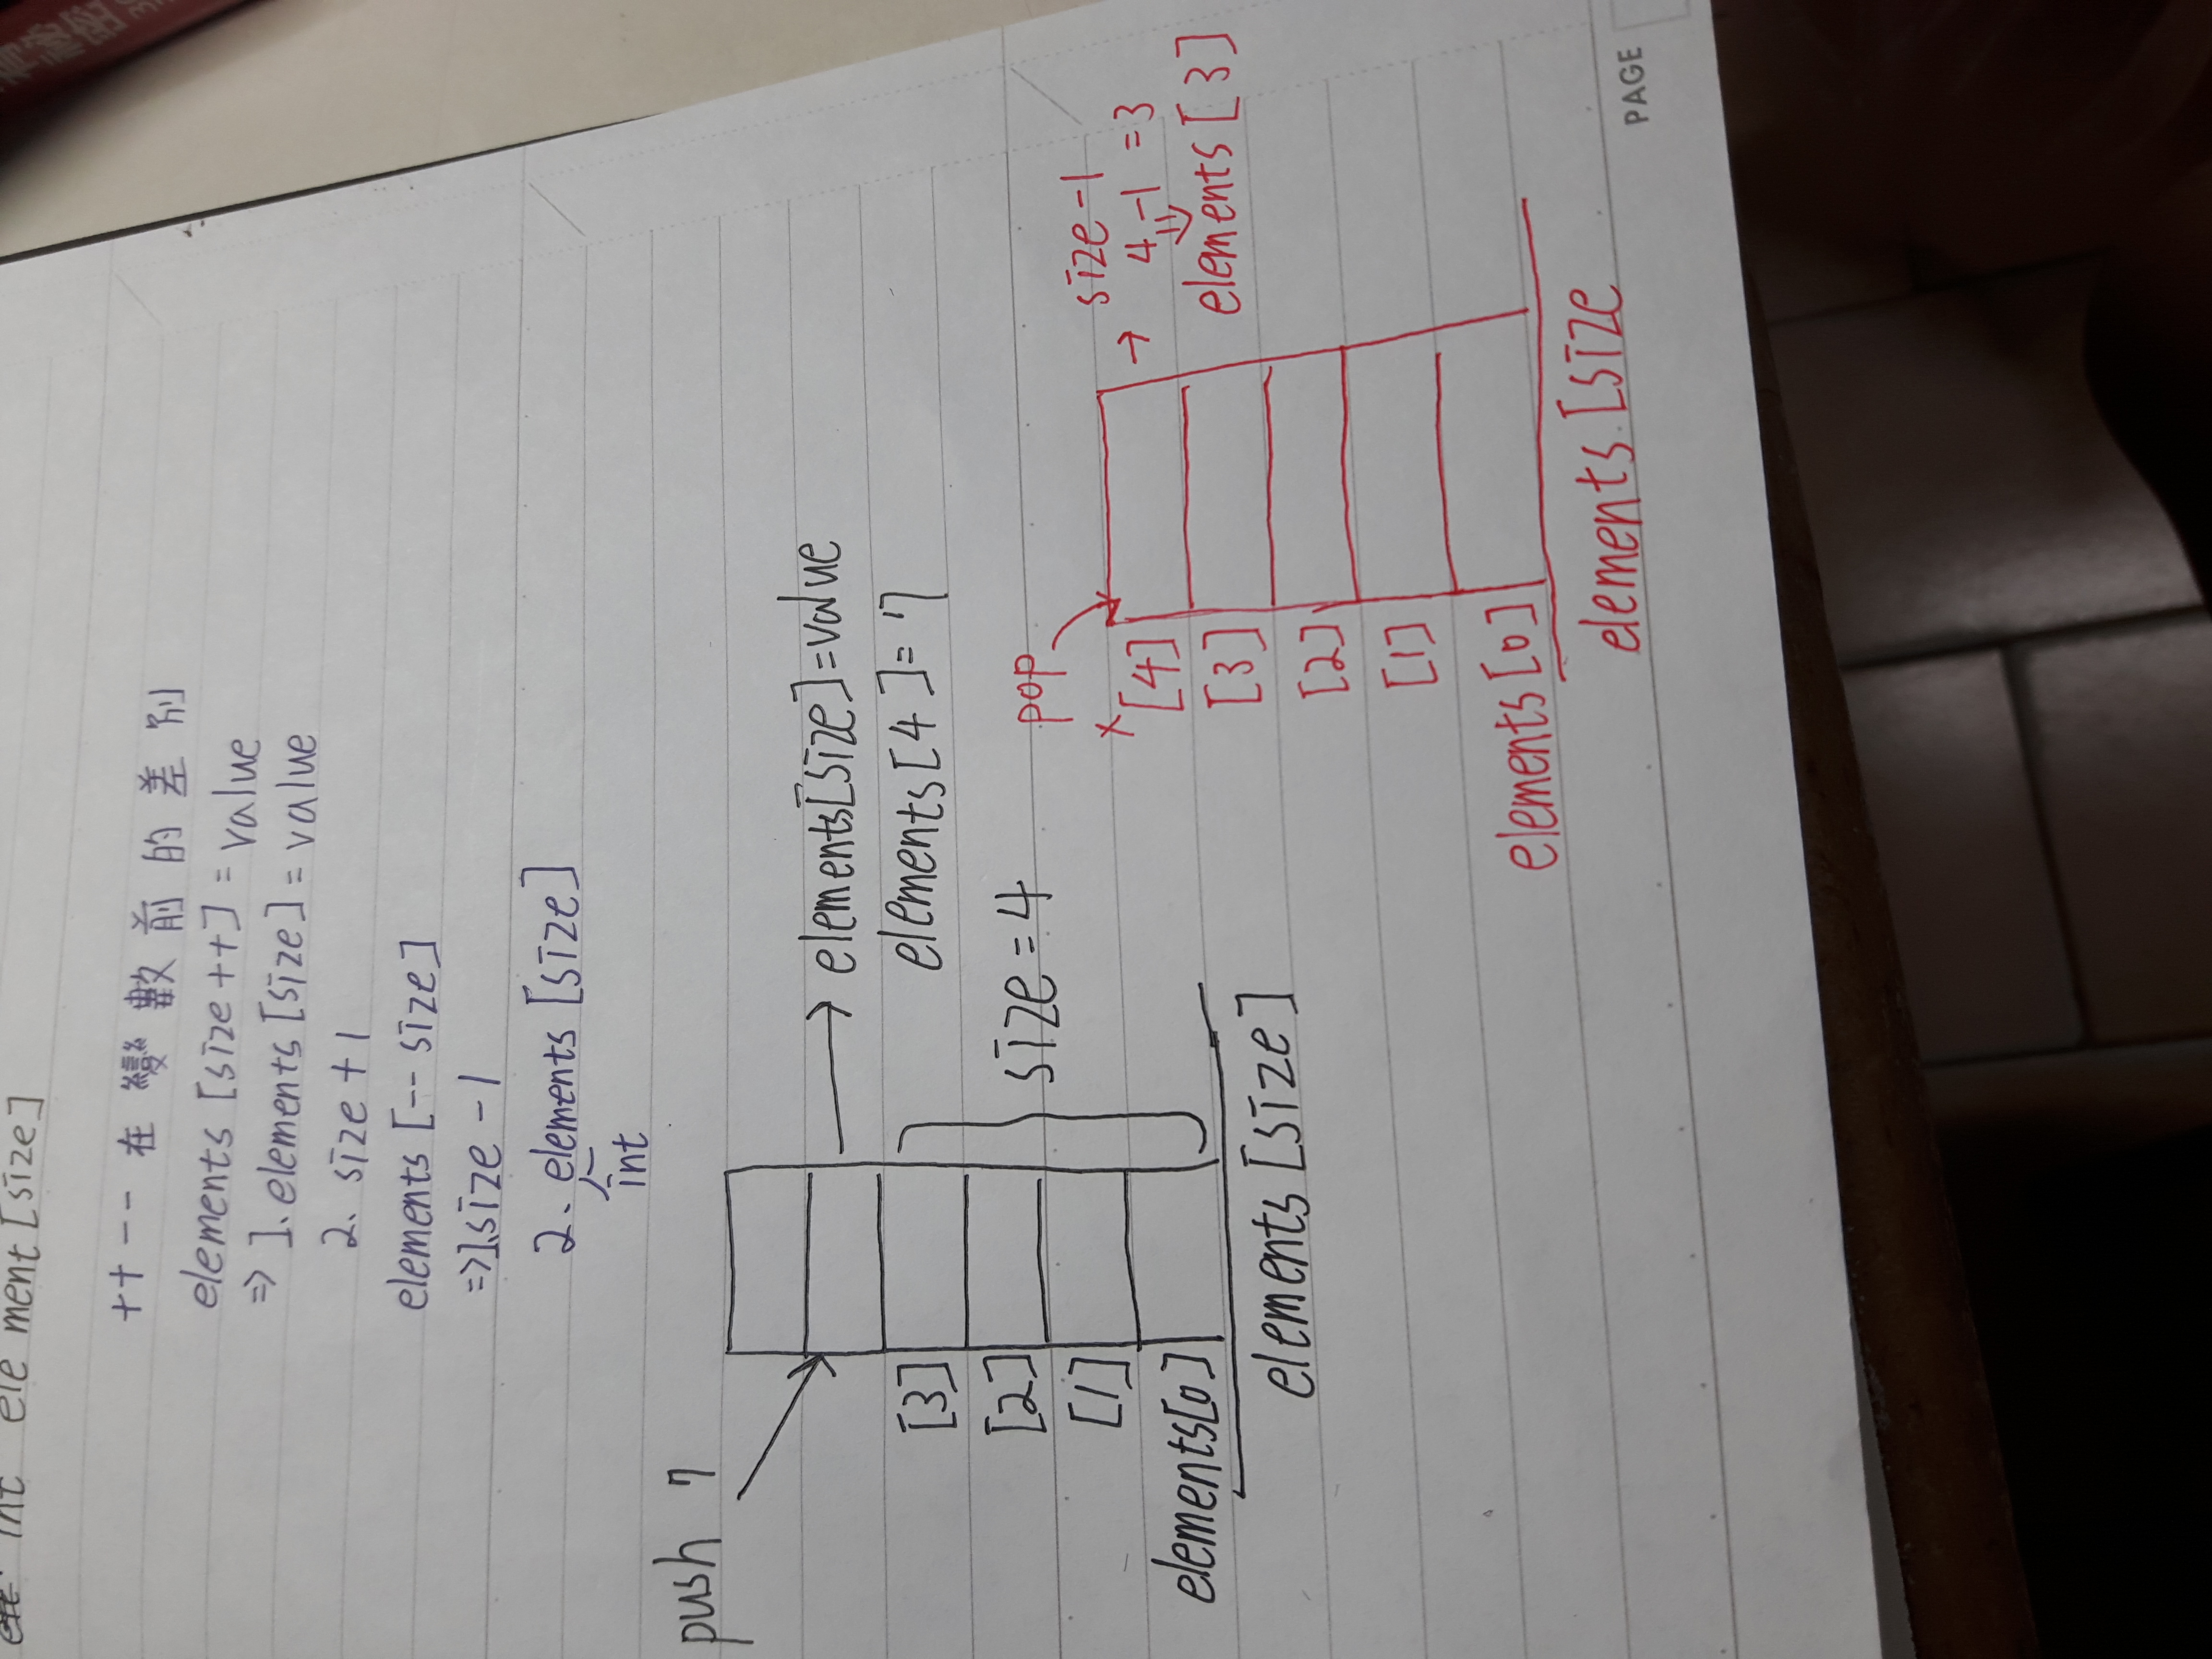 int ele ment [size]
++ -- 在 變 數 前 的 差 別
elements [size ++] = value
=> 1. elements [size] = value
2. size + 1
elements [-- size]
=> 1. size - 1
2. elements [size]
int
push 7
elements[size]=value
elements[4]= 7
[3]
[2]
size = 4
[1]
elements[0]
elements [size]
pop
size -1
x [4]
→ 4 -1 = 3
elements [3]
[3]
[2]
[1]
elements [0]
elements [size
PAGE